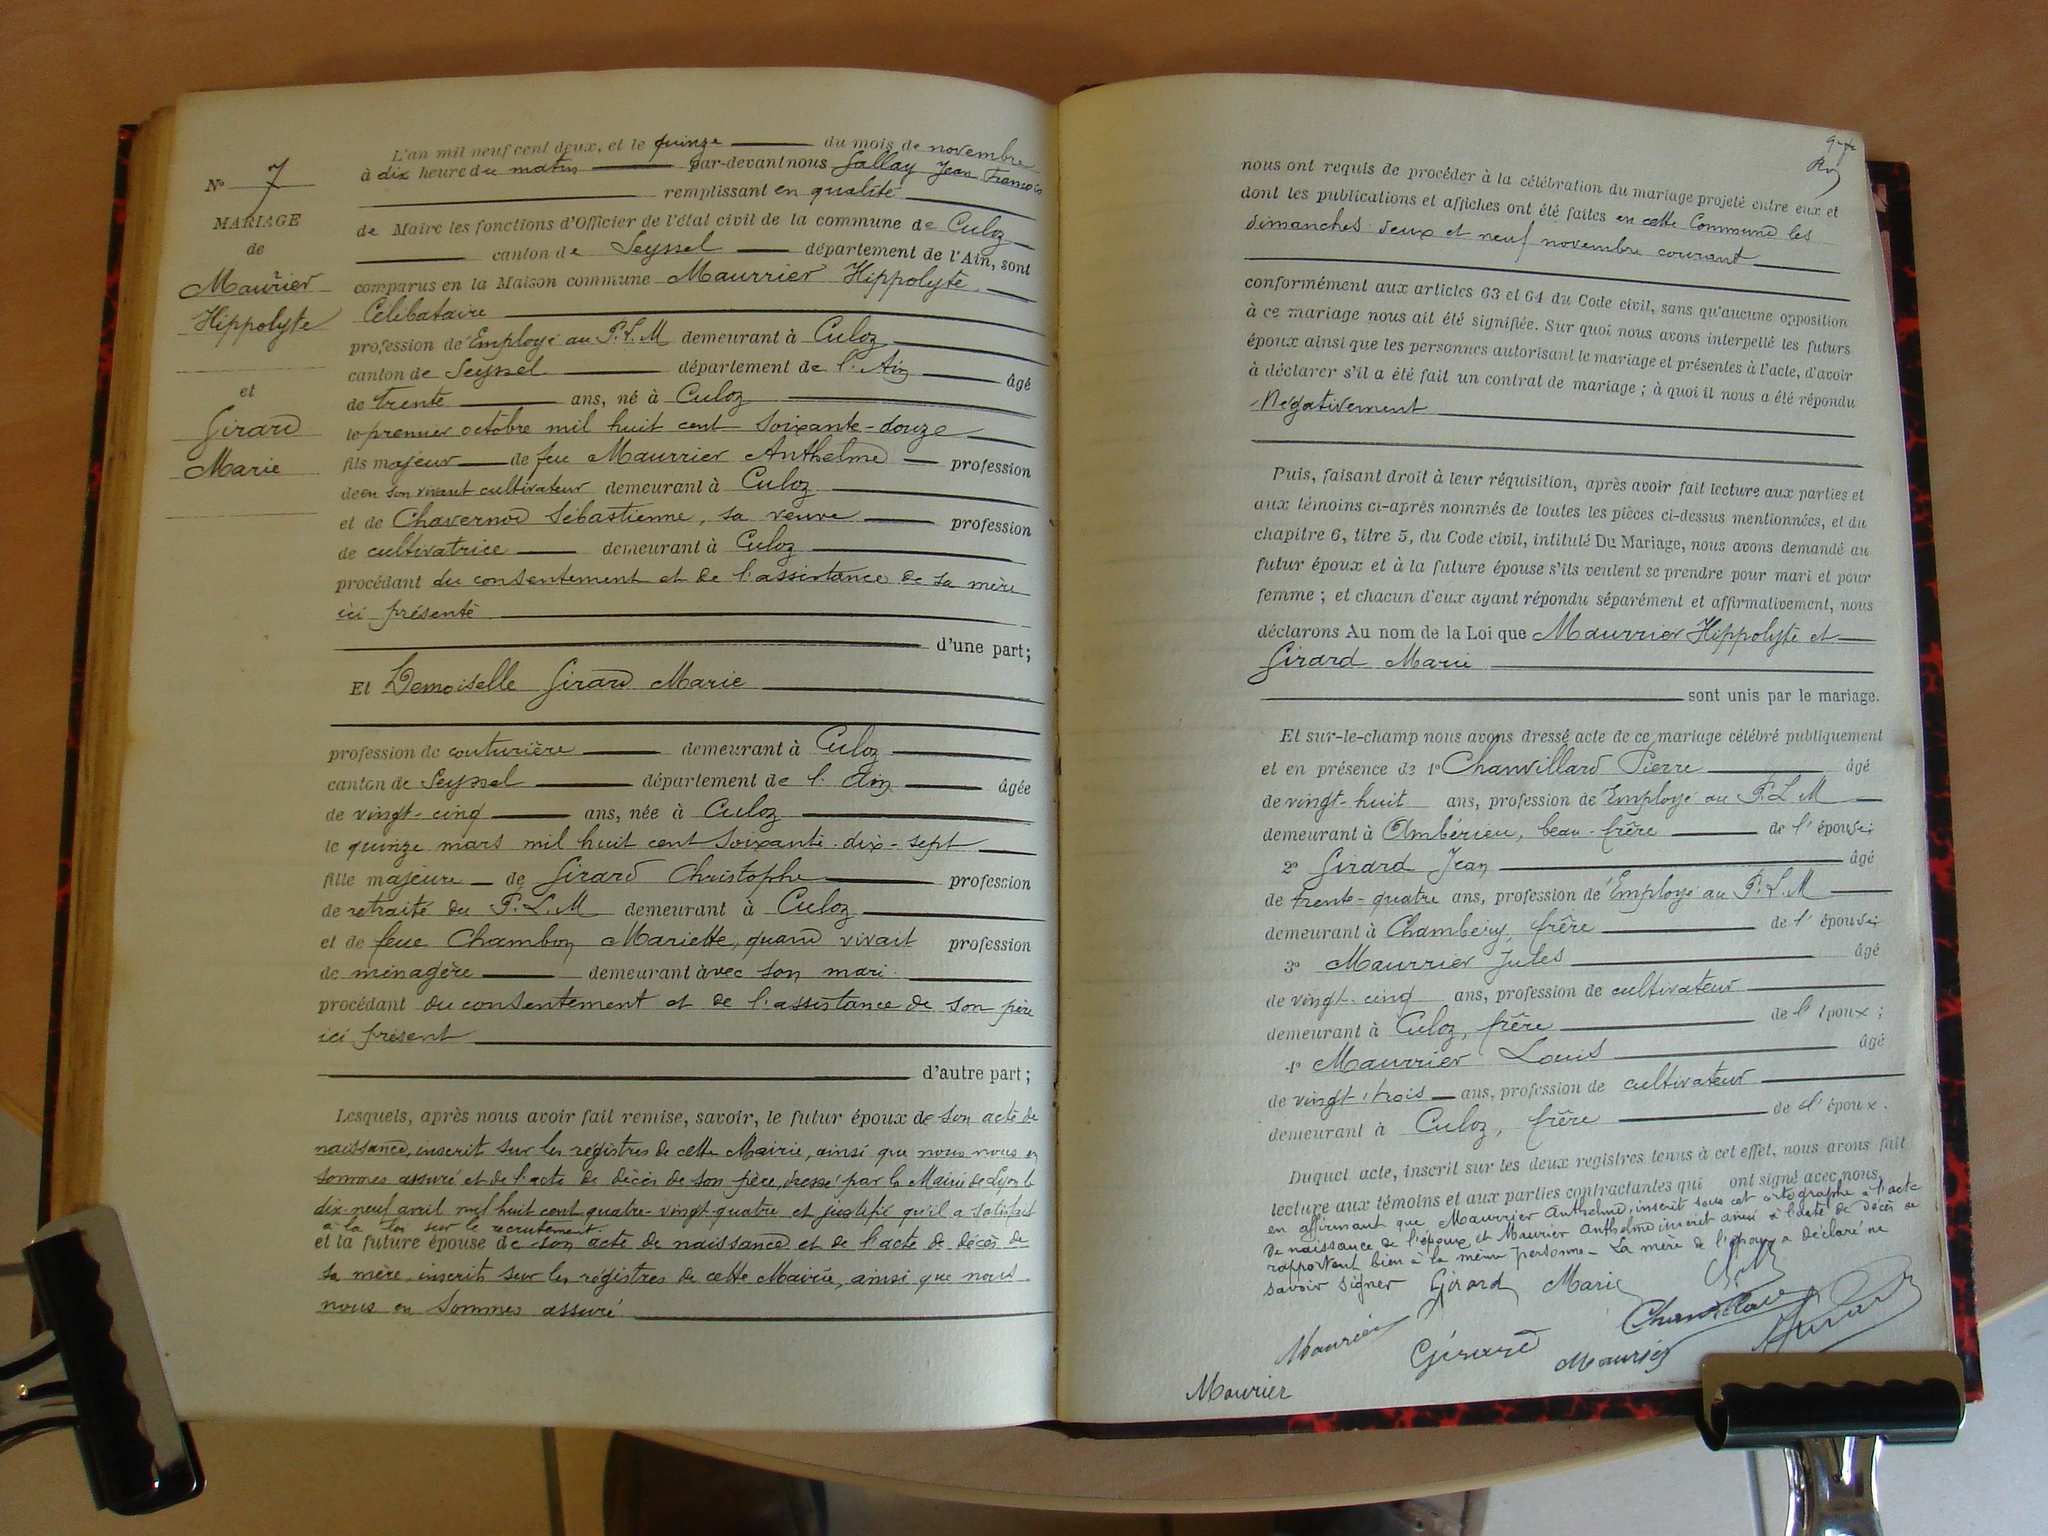 N° 7
MARIAGE
de
Maurier
Hippolyte
et
Girard
Marie
L'an mil neuf cent deux, et le quinze du mois de novembre
à dix heure du matin par-devant nous Gallay Jean François
remplissant en qualité
de Maire les fonctions d'Officier de l'état civil de la commune de Culoz
canton de Seyssel département de l'Ain, sont
comparus en la Maison commune Maurrier Hippolyte
Célibataire
profession de Employé au P.L.M demeurant à Culoz
canton de Seyssel département de l'Ain âgé
de trente ans, né à Culoz
le premier octobre mil huit cent soixante-douze
fils majeur de feu Maurrier Anthelme profession
de en son vivant cultivateur demeurant à Culoz
et de Chavernod Sébastienne, sa veuve profession
de cultivatrice demeurant à Culoz
procédant du consentement et de l'assistance de sa mère
ici présente
d'une part;
Et Demoiselle Girard Marie
profession de couturière demeurant à Culoz
canton de Seyssel département de l'Ain âgée
de vingt-cinq ans, née à Culoz
le quinze mars mil huit cent soixante-dix-sept
fille majeure de Girard Christophe profession
de retraité du P.L.M demeurant à Culoz
et de feue Chambon Mariette, quand vivait profession
de ménagère demeurant avec son mari
procédant du consentement et de l'assistance de son père
ici présent
d'autre part;
Lesquels, après nous avoir fait remise, savoir, le futur époux de son acte de
naissance, inscrit sur les régistres de cette Mairie, ainsi que nous nous en
sommes assuré et de l'acte de décès de son père, dressé par la Mairie de Lyon le
dix-neuf avril mil huit cent quatre-vingt-quatre et justifié qu'il a satisfait
à la loi sur le recrutement
et la future épouse de son acte de naissance et de l'acte de décès de
sa mère, inscrits sur les régistres de cette Mairie, ainsi que nous
nous en sommes assuré
nous ont requis de procéder à la célébration du mariage projeté entre eux et
dont les publications et affiches ont été faites en cette Commune les
dimanches deux et neuf novembre courant
conformément aux articles 63 et 64 du Code civil, sans qu'aucune opposition
à ce mariage nous ait été signifiée. Sur quoi nous avons interpellé les futurs
époux ainsi que les personnes autorisant le mariage et présentes à l'acte, d'avoir
à déclarer s'il a été fait un contrat de mariage; à quoi il nous a été répondu
Négativement
Puis, faisant droit à leur réquisition, après avoir fait lecture aux parties et
aux témoins ci-après nommés de toutes les pièces ci-dessus mentionnées, et du
chapitre 6, titre 5, du Code civil, intitulé Du Mariage, nous avons demandé au
futur époux et à la future épouse s'ils veulent se prendre pour mari et pour
femme; et chacun d'eux ayant répondu séparément et affirmativement, nous
déclarons Au nom de la Loi que Maurrier Hippolyte et
Girard Marie
sont unis par le mariage.
Et sur-le-champ nous avons dressé acte de ce mariage célébré publiquement
et en présence de 1° Chanvillard Pierre âgé
de vingt-huit ans, profession de Employé au P.L.M
demeurant à Ambérieu, beau-frère de l'épouse;
2° Girard Jean âgé
de trente-quatre ans, profession de Employé au P.L.M
demeurant à Chambéry, frère de l'épouse;
3° Maurrier Jules âgé
de vingt-cinq ans, profession de cultivateur
demeurant à Culoz, frère de l'époux;
4° Maurrier Louis âgé
de vingt-trois ans, profession de cultivateur
demeurant à Culoz, frère de l'époux.
Duquel acte, inscrit sur les deux registres tenus à cet effet, nous avons fait
lecture aux témoins et aux parties contractantes qui ont signé avec nous,
en affirmant que Maurrier Anthelme, inscrit sous cet ortographe à l'acte
de naissance de l'époux et Maurier Anthelme inscrit ainsi à l'acte de décès se
rapportent bien à la même personne - La mère de l'époux a déclaré ne
savoir signer Girard Marie
Maurier Girard Maurier Chanvillard
Maurier